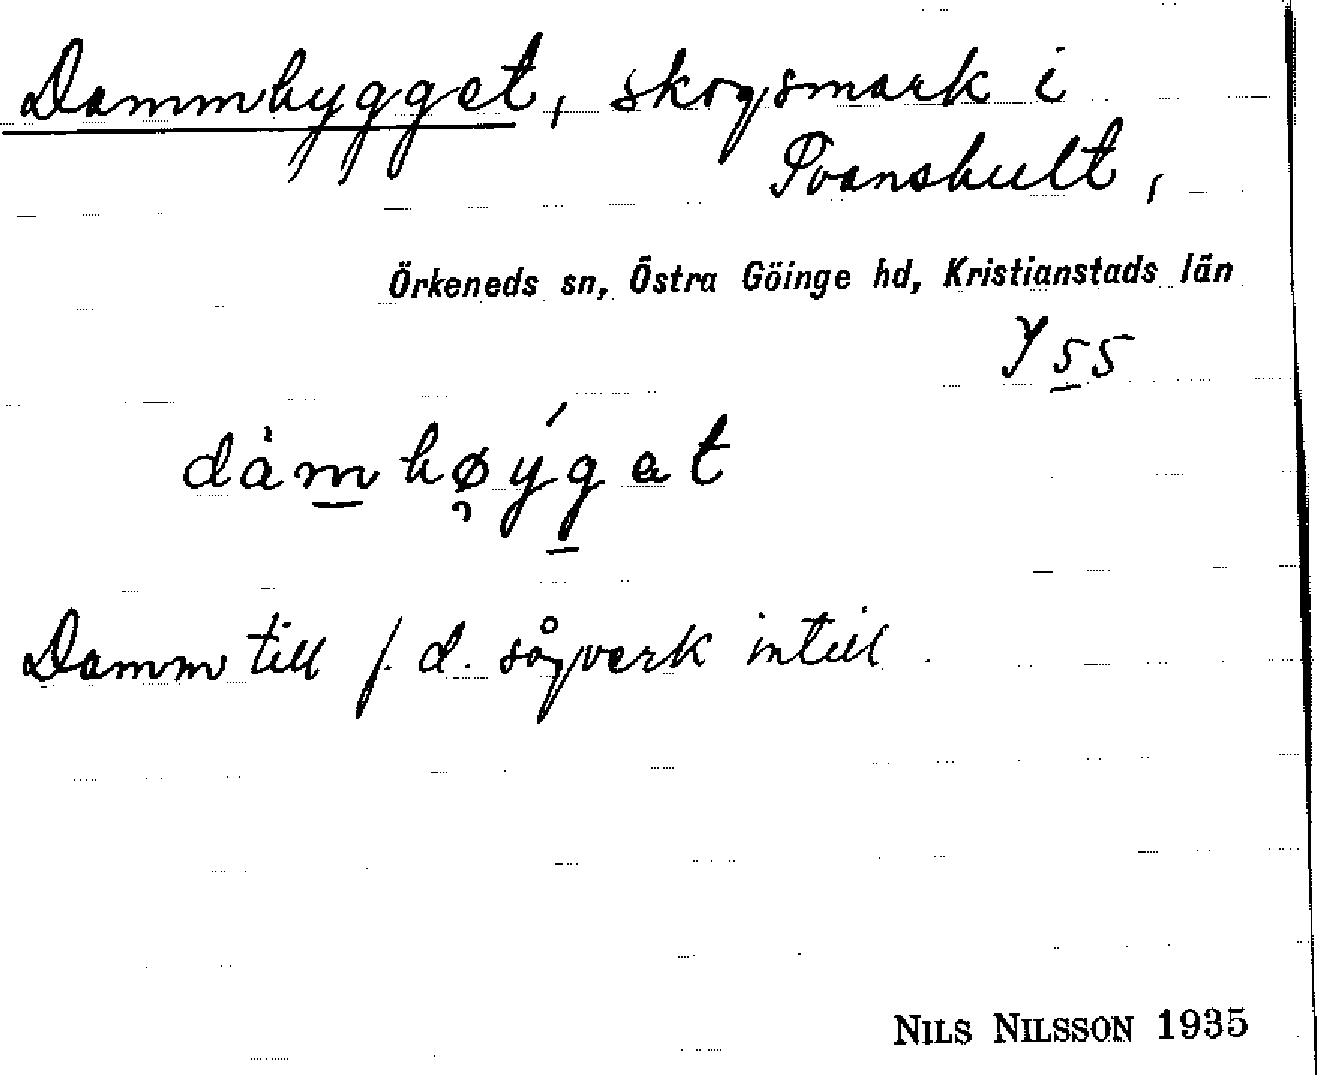 Dammhygget, skogsmark i
Transhult,
Örkeneds sn, Östra Göinge hd, Kristianstads län
Y 55
dàmhøýgat
Damm till f. d. sågverk intill.
NILS NILSSON 1935